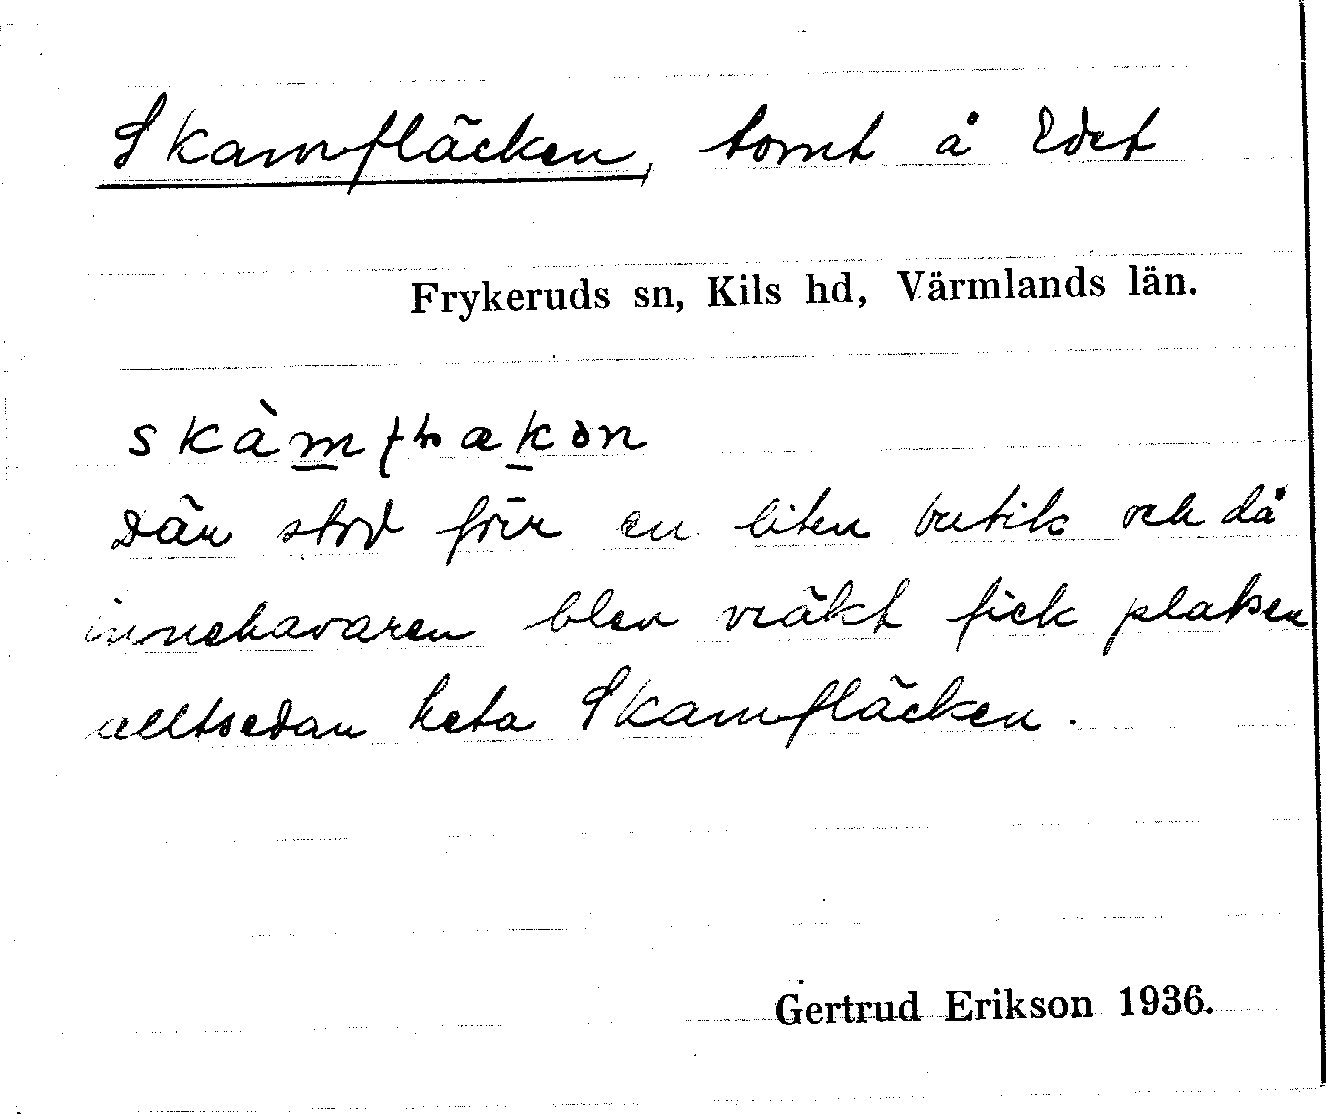 Skamfläcken, tomt å Edet
Frykeruds sn, Kils hd, Värmlands län.
Där stod förr en liten butik och då
innehavaren blev vräkt fick platsen
alltsedan heta Skamfläcken.
Gertrud Erikson 1936.